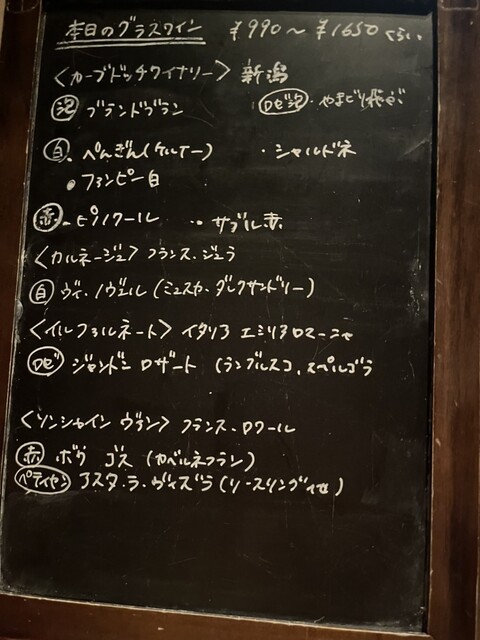 本日のグラスワイン ¥990〜¥1650くらい
〈カーブドッチワイナリー〉 新潟
泡 ブランドブラン ロゼ泡・やまどり
白・ぺんぎん(ケルナー) ・シャルドネ
・ファンピー白
赤・ピノノワール ・サブル赤
〈カルネージュ〉フランス・ジュラ
白 ヴィ・ノヴェル(ミュスカ・ダレクサンドリー)
〈イルファルネート〉イタリア エミリアロマーニャ
ロゼ ジャンドン ロザート (ランブルスコ、スペルゴラ
〈ソンシャイン ヴァン〉フランス・ロワール
赤 ボウ ゴス (カベルネフラン)
ペティアン アスタ・ラ・ヴィズラ(リースリング他)